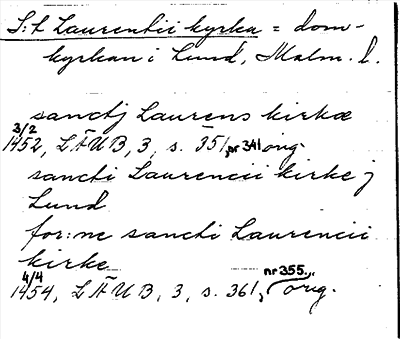 S:t Laurentii kyrka = dom-
kyrkan i Lund, Malm. l.
sanctj Laurens kirkæ
3/2 1452, LÄUB, 3, s. 351, nr 341 orig.
sancti Laurencii kirke j
Lund
for:ne sancti Laurencii
kirke
4/4 1454, LÄUB, 3, s. 361, nr 355., orig.